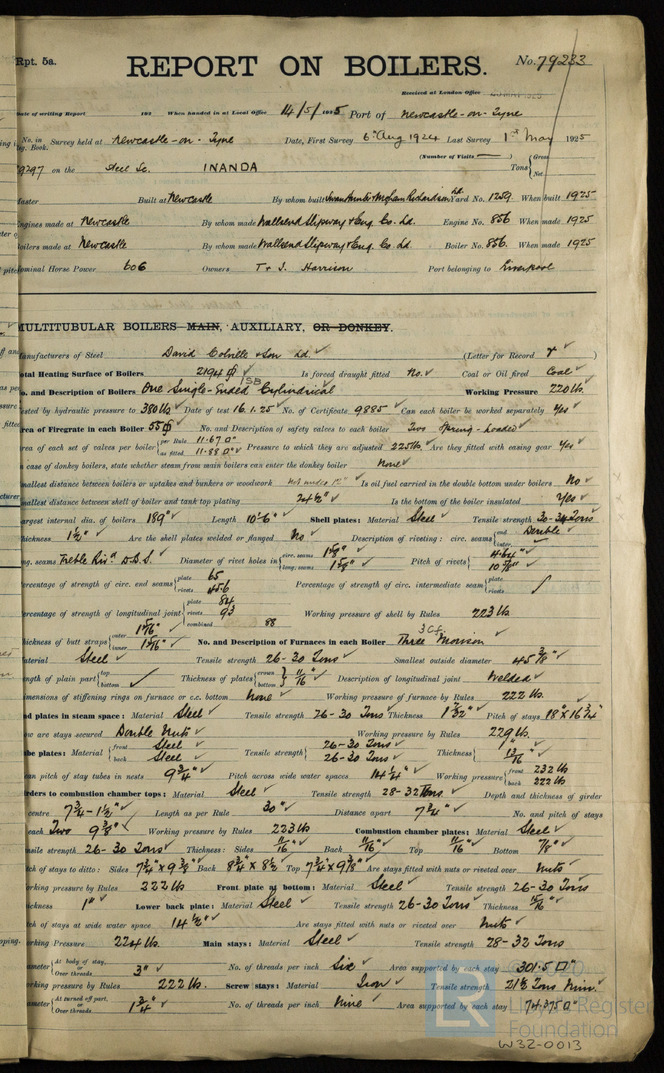 Rpt. 5a.
REPORT ON BOILERS.
No. 79233
Received at London Office
Date of writing Report 192 When handed in at Local Office 14/5/1925 Port of Newcastle-on-Tyne
No. in Survey held at Newcastle-on-Tyne Date, First Survey 6th Aug 1924 Last Survey 1st May 1925
Reg. Book. (Number of Visits —)
on the Steel Sc. INANDA Tons { Gross Net
Master Built at Newcastle By whom built Swan Hunter & Wigham Richardson Ltd Yard No. 1259 When built 1925
Engines made at Newcastle By whom made Wallsend Slipway & Eng. Co. Ld. Engine No. 856 When made 1925
Boilers made at Newcastle By whom made Wallsend Slipway & Eng. Co. Ld. Boiler No. 856. When made 1925
Nominal Horse Power 606 Owners T. & J. Harrison Port belonging to Liverpool
MULTITUBULAR BOILERS MAIN, AUXILIARY, OR DONKEY.
Manufacturers of Steel David Colville & Son Ld. (Letter for Record r)
Total Heating Surface of Boilers 2194 Is forced draught fitted No. Coal or Oil fired Coal
No. and Description of Boilers One Single-Ended Cylindrical 1SB Working Pressure 220 lbs
Tested by hydraulic pressure to 380 lbs Date of test 16.1.25 No. of Certificate 9885 Can each boiler be worked separately Yes
Area of Firegrate in each Boiler 55 No. and Description of safety valves to each boiler Two Spring-Loaded
Area of each set of valves per boiler { per Rule 11.67 □" as fitted 11.88 □" Pressure to which they are adjusted 225 lbs Are they fitted with easing gear Yes
In case of donkey boilers, state whether steam from main boilers can enter the donkey boiler None
Smallest distance between boilers or uptakes and bunkers or woodwork Not under 12" Is oil fuel carried in the double bottom under boilers No
Smallest distance between shell of boiler and tank top plating 24½" Is the bottom of the boiler insulated Yes
Largest internal dia. of boilers 189" Length 10'-6" Shell plates: Material Steel Tensile strength 30-34 Tons
Thickness 1½" Are the shell plates welded or flanged No Description of riveting: circ. seams { end Double inter.
long. seams Treble Riv. D.B.S. Diameter of rivet holes in { circ. seams long. seams Pitch of rivets { 4.64" 10⅞"
Percentage of strength of circ. end seams { plate 65 rivets 45.6 Percentage of strength of circ. intermediate seam { plate rivets
Percentage of strength of longitudinal joint { plate 84 rivets 93 combined 88 Working pressure of shell by Rules 223 lbs
Thickness of butt straps { outer 1 5/16" inner No. and Description of Furnaces in each Boiler Three Morison 3 Cf.
Material Steel Tensile strength 26-30 Tons Smallest outside diameter 45⅜"
Length of plain part { top bottom Thickness of plates { crown bottom } 11/16" Description of longitudinal joint Welded
Dimensions of stiffening rings on furnace or c.c. bottom None Working pressure of furnace by Rules 222 lbs.
End plates in steam space: Material Steel Tensile strength 26-30 Tons Thickness 1 7/32" Pitch of stays 18" x 16¾"
How are stays secured Double Nuts Working pressure by Rules 229 lbs
Tube plates: Material { front Steel back Steel Tensile strength { 26-30 Tons 26-30 Tons Thickness { 1" 13/16"
Mean pitch of stay tubes in nests 9¾" Pitch across wide water spaces 14¼" Working pressure { front 232 lbs back 222 lbs
Girders to combustion chamber tops: Material Steel Tensile strength 28-32 Tons Depth and thickness of girder
at centre 7¾-1½" Length as per Rule 30" Distance apart 7¼" No. and pitch of stays
in each Two 9⅜" Working pressure by Rules 223 lbs Combustion chamber plates: Material Steel
Tensile strength 26-30 Tons Thickness: Sides 11/16" Back 11/16" Top 11/16" Bottom 7/8"
Pitch of stays to ditto: Sides 7¾" x 9⅜" Back 8¾" x 8½ Top 7¾" x 9⅞" Are stays fitted with nuts or riveted over Nuts
Working pressure by Rules 222 lbs Front plate at bottom: Material Steel Tensile strength 26-30 Tons
Thickness 1" Lower back plate: Material Steel Tensile strength 26-30 Tons Thickness
Pitch of stays at wide water space 14½" Are stays fitted with nuts or riveted over Nuts
Working Pressure 224 lbs Main stays: Material Steel Tensile strength 28-32 Tons
Diameter { At body of stay, or Over threads 3" No. of threads per inch Six Area supported by each stay 301.5 □"
Working pressure by Rules 222 lbs. Screw stays: Material Iron Tensile strength 21½ Tons Min.
Diameter { At turned off part, or Over threads 1¾" No. of threads per inch Nine Area supported by each stay 74.375 □"
© 2020
LR
Lloyd's Register
Foundation
W32-0013